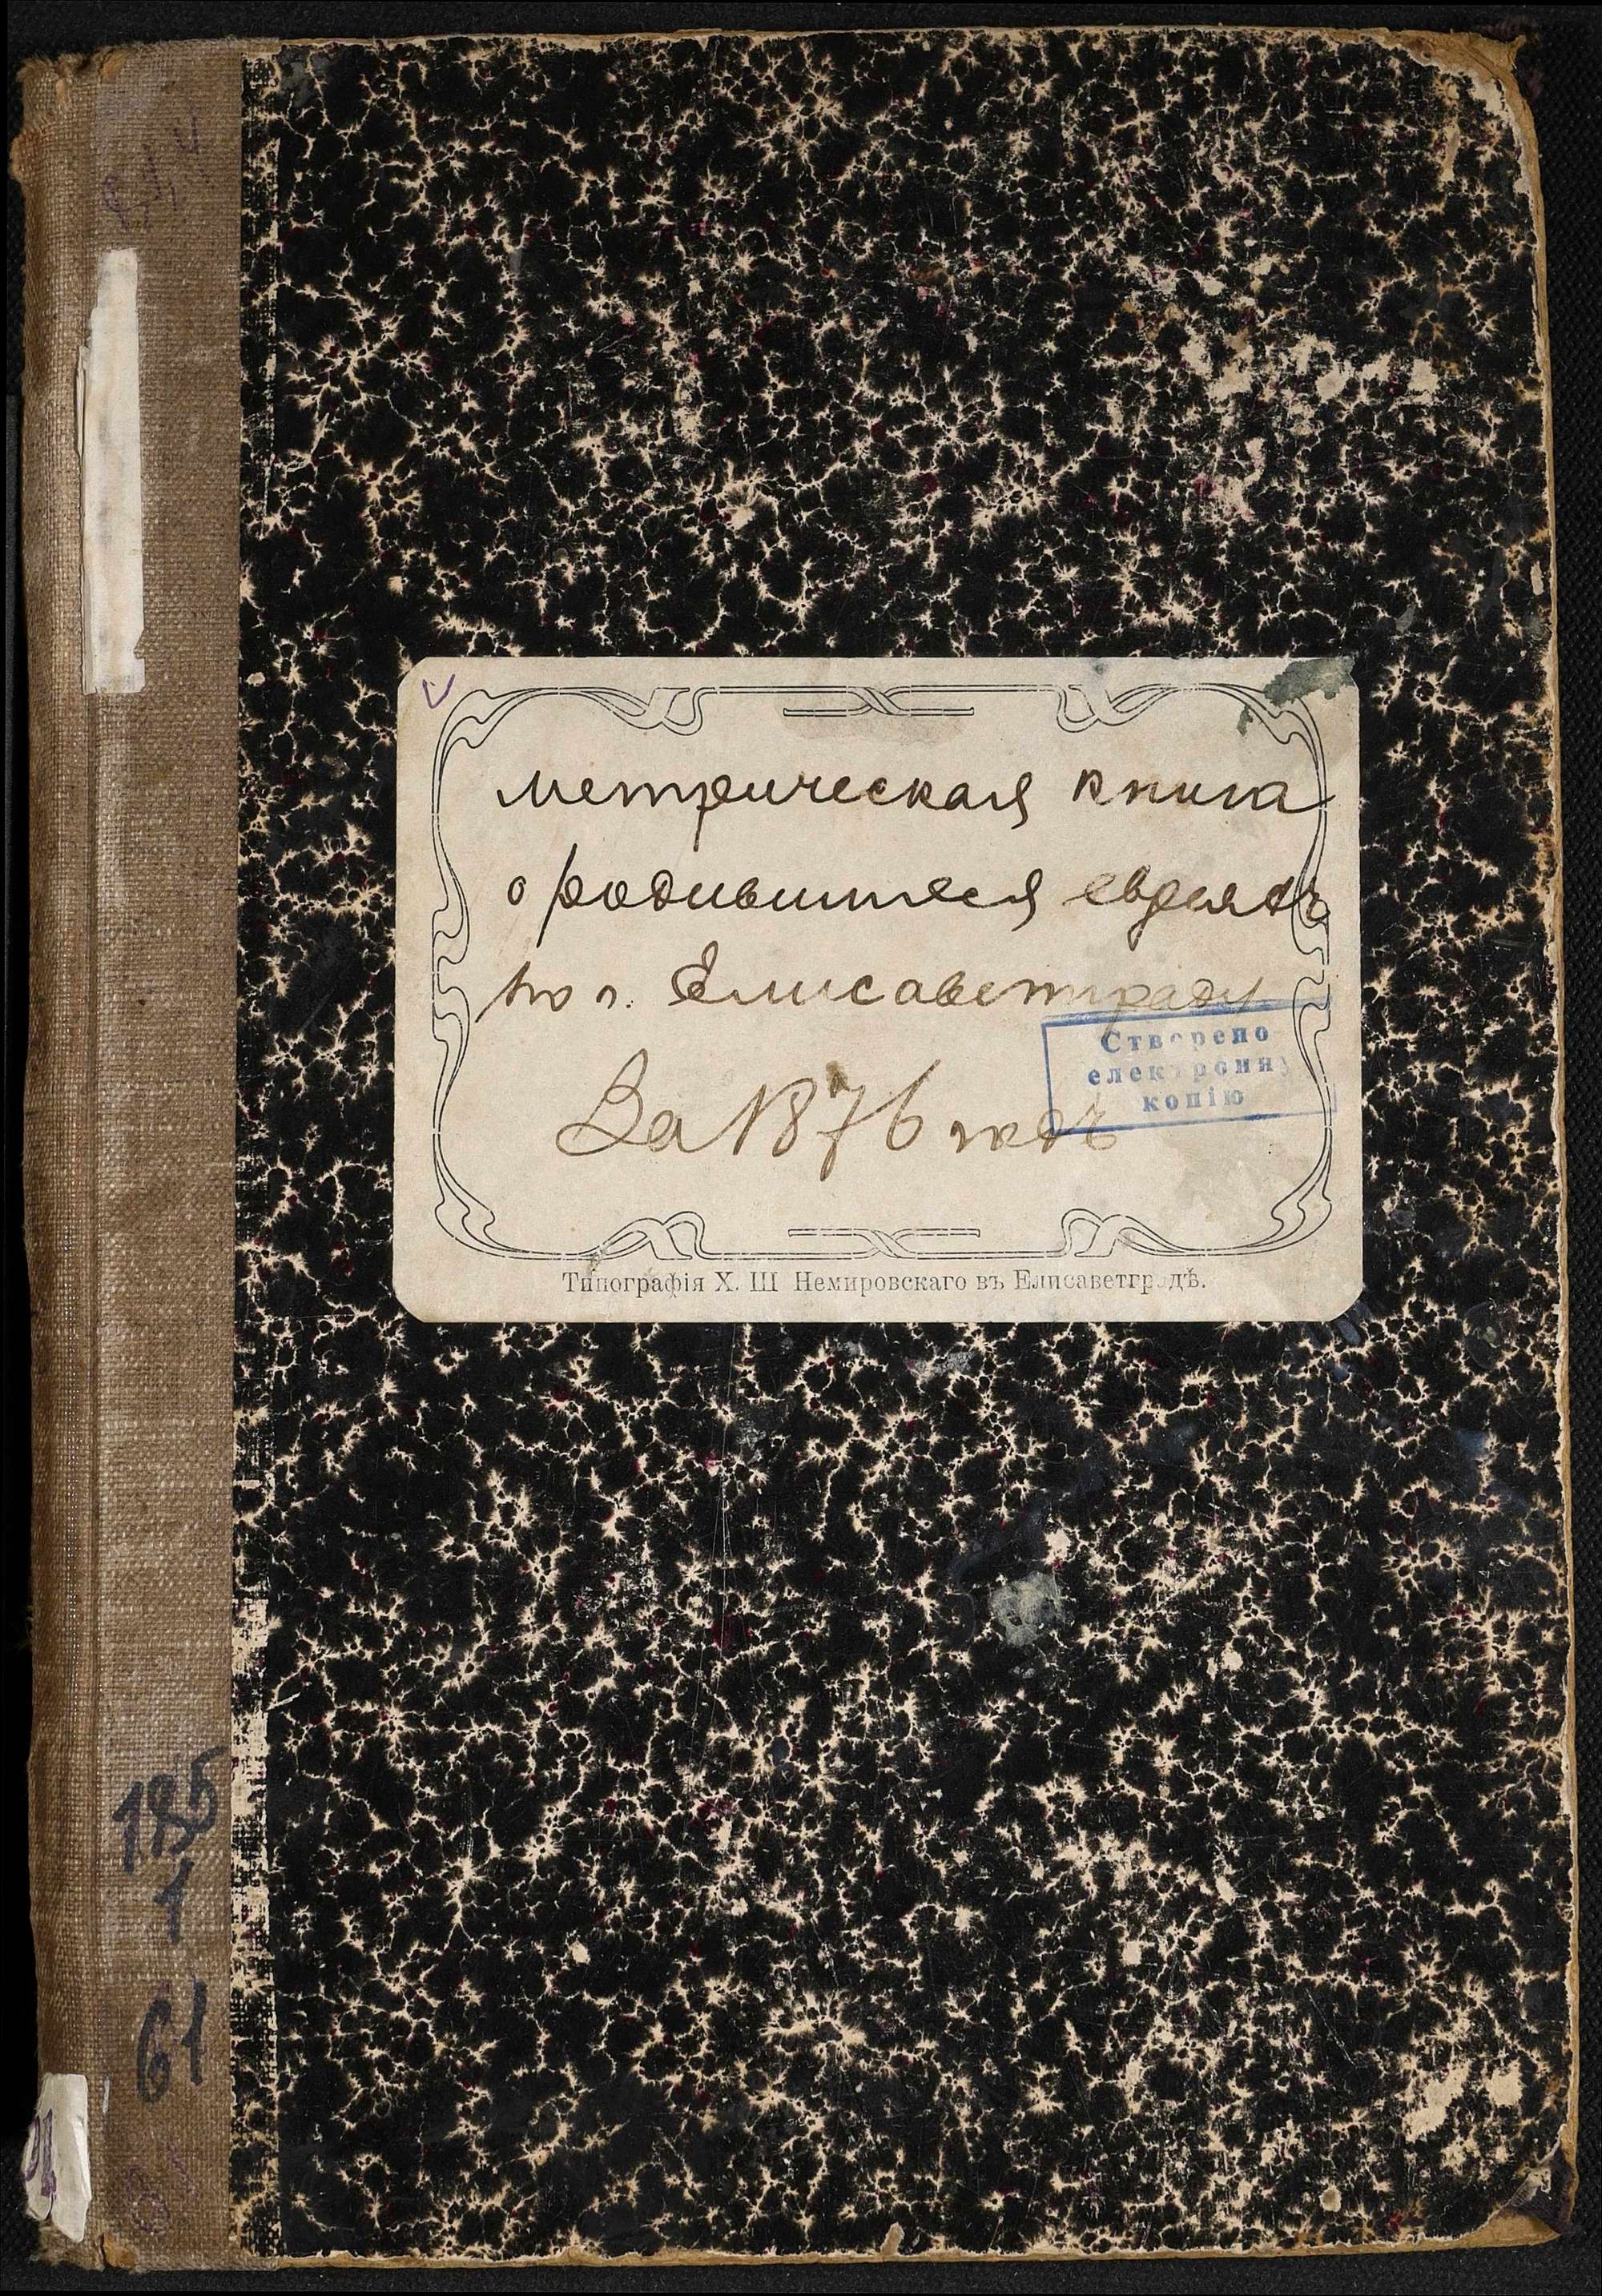 метрическая книга
о родившихся евреяхъ
по г. Елисаветграду
За 1876 годъ
Створено
електронну
копію
Типографія Х. Ш Немировскаго въ Елисаветградѣ.
185
1
61